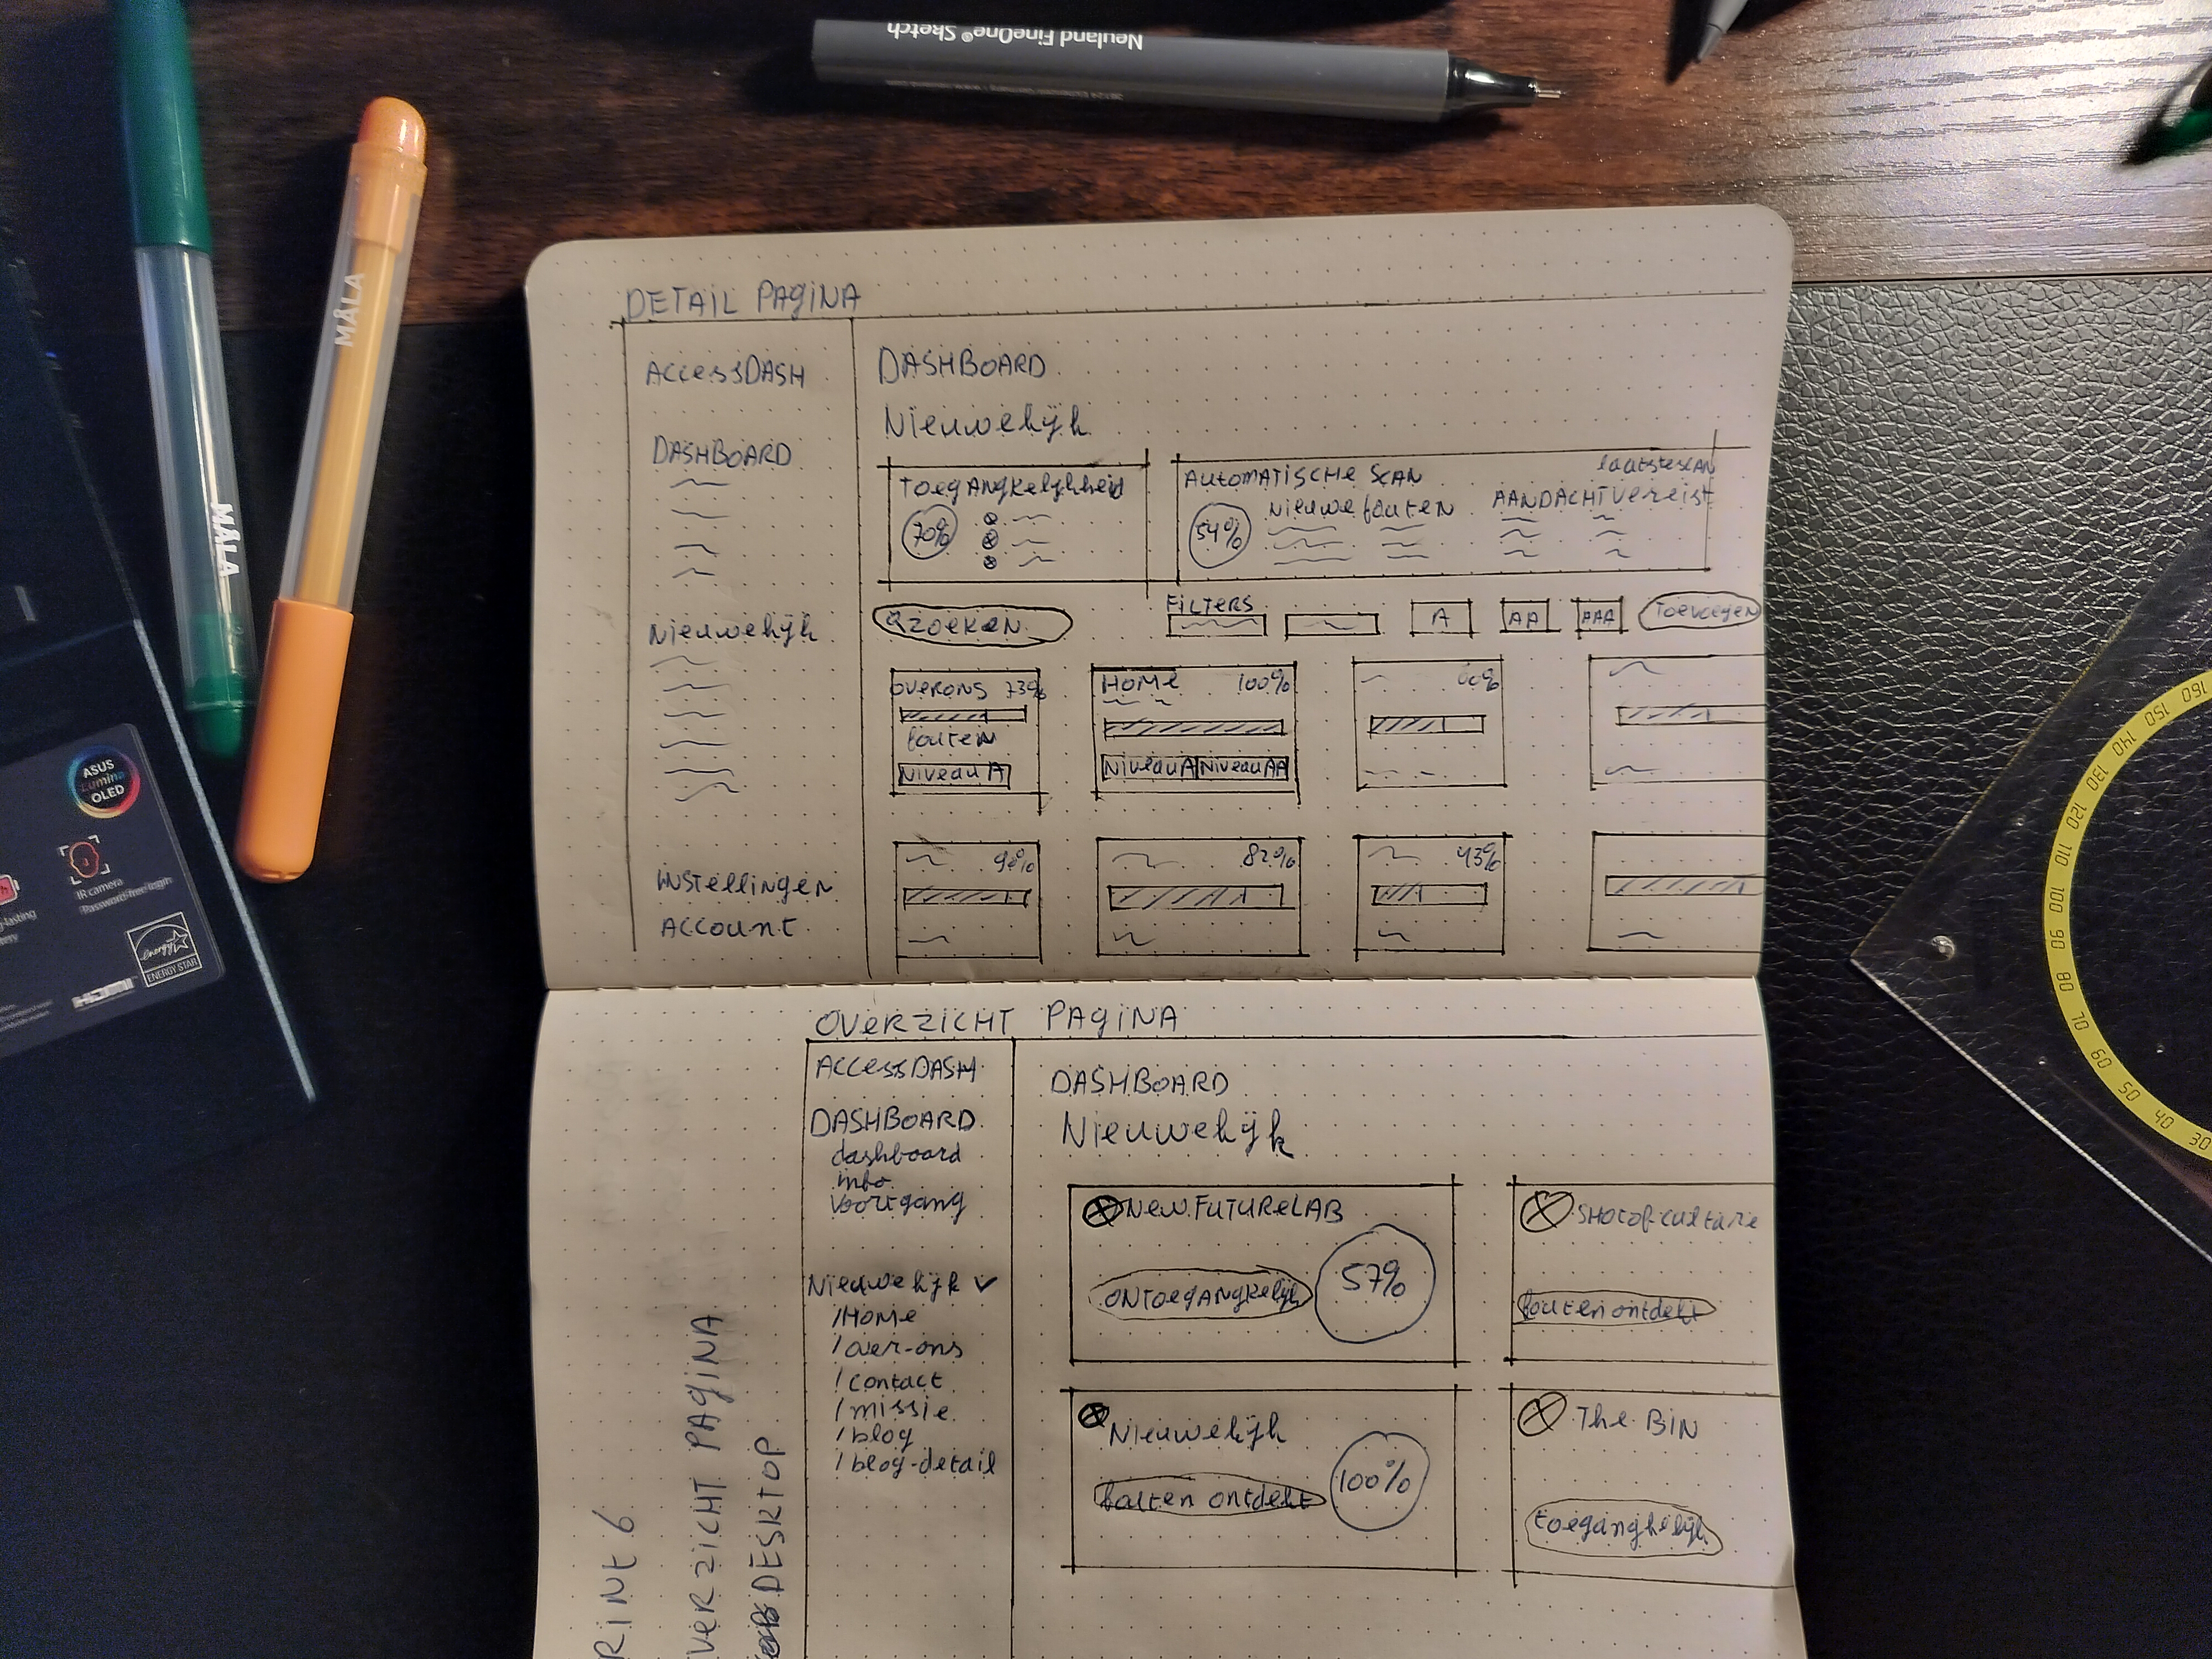 Neuland FineOne® Sketch
MÅLA
MÅLA
ASUS
Lumina
OLED
IR camera
Password-free login
energy
ENERGY STAR
HDMI
DETAIL PAGINA
AccessDASH
DASHBOARD
Nieuwekijk
INstellingen
Account
DASHBOARD
Nieuwekijk
ToegANgkelijkheid
70%
AutomATISCHe SCAN
laatste scan
Nieuwe fouten
AANDACHT vereist
54%
ZOEKEN
FILTERS
A
AA
AAA
Toevoegen
OVERONS 73%
fouten
Niveau A
HOMe 100%
Niveau A Niveau AA
60%
90%
82%
43%
OVERZICHT PAGINA
AccessDASH
DASHBOARD
dashboard
info
voortgang
Nieuwekijk
/Home
/over-ons
/contact
/missie
/blog
/blog-detail
DASHBOARD
Nieuwekijk
New FUTURELAB
ONToegANgkelijk
57%
fouten ontdekt
Nieuwekijk
fouten ontdekt
100%
The BIN
toegangkelijk
RINT 6
VERZICHT PAGINA
DESKTOP
160
150
140
130
120
110
100
90
80
70
60
50
40
30